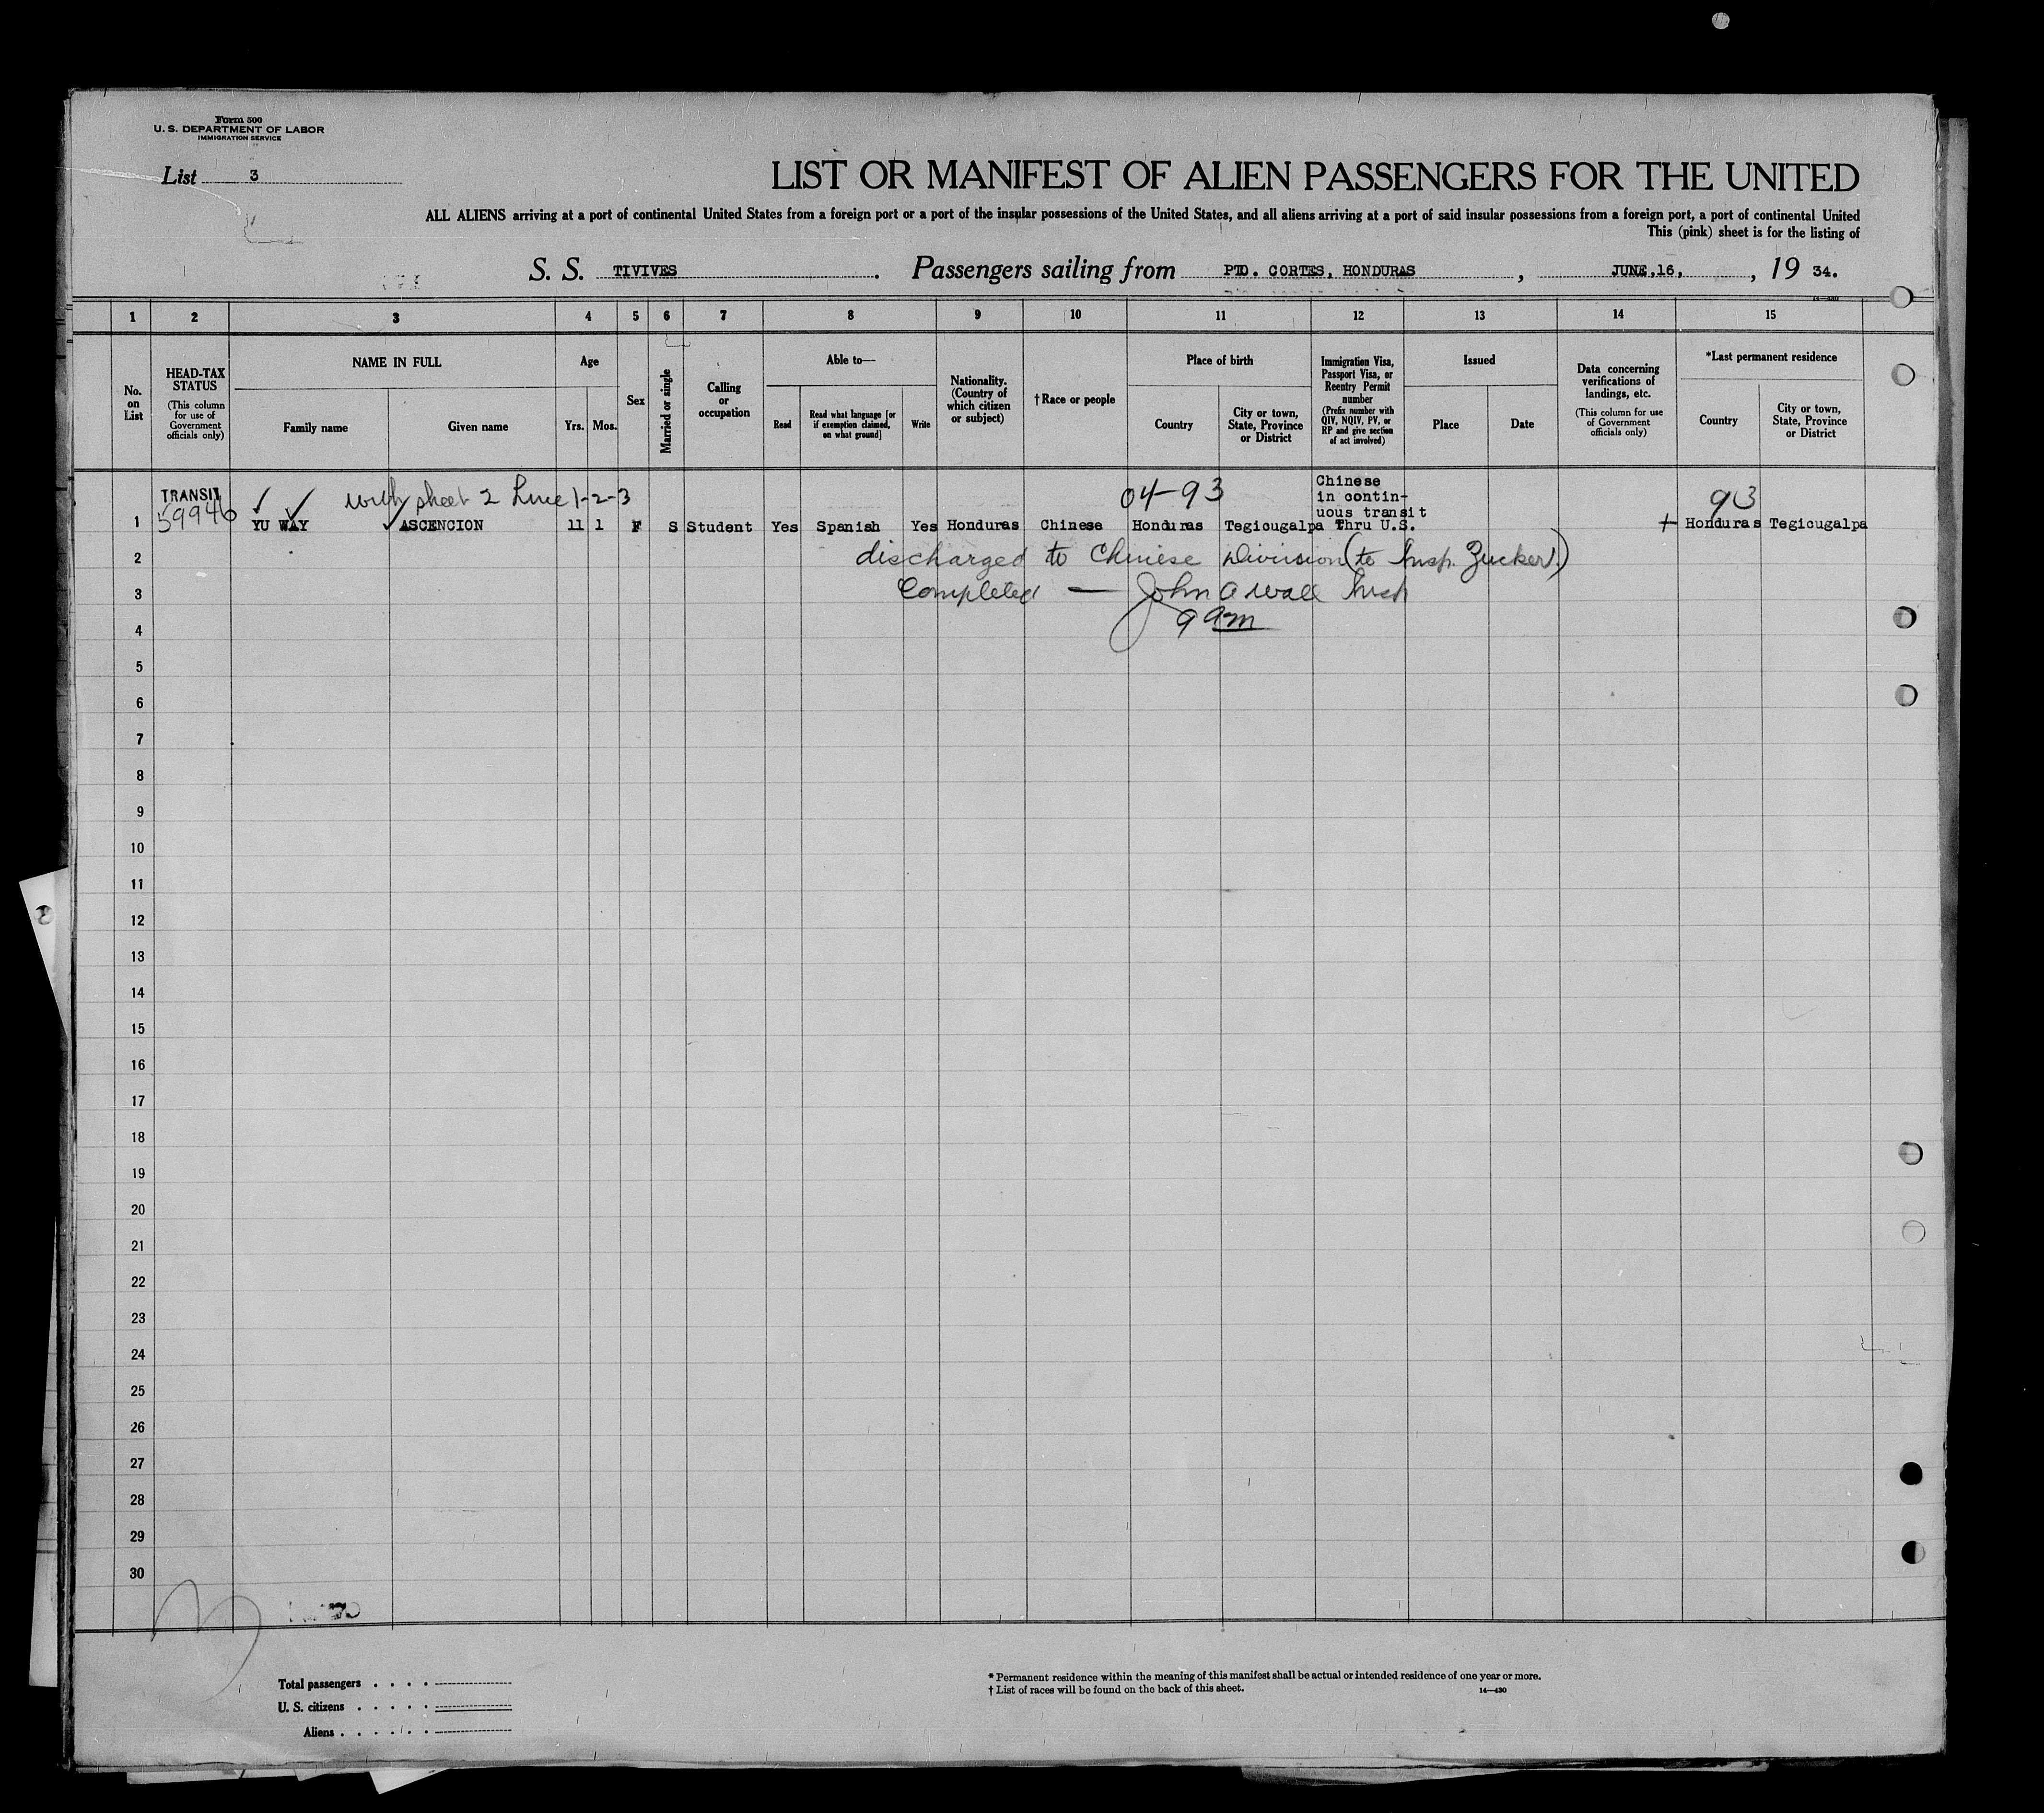 Form 500
U. S. DEPARTMENT OF LABOR
IMMIGRATION SERVICE
List 3
LIST OR MANIFEST OF ALIEN PASSENGERS FOR THE UNITED
ALL ALIENS arriving at a port of continental United States from a foreign port or a port of the insular possessions of the United States, and all aliens arriving at a port of said insular possessions from a foreign port, a port of continental United
This (pink) sheet is for the listing of
S. S. TIVIVES. Passengers sailing from PTO. CORTES, HONDURAS, JUNE,16, , 19 34.
14—430
1 2 3 4 5 6 7 8 9 10 11 12 13 14 15
No. on List
HEAD-TAX STATUS
(This column for use of Government officials only)
NAME IN FULL
Family name
Given name
Age
Yrs.
Mos.
Sex
Married or single
Calling or occupation
Able to—
Read
Read what language [or if exemption claimed, on what ground]
Write
Nationality. (Country of which citizen or subject)
†Race or people
Place of birth
Country
City or town, State, Province or District
Immigration Visa, Passport Visa, or Reentry Permit number
(Prefix number with QIV, NQIV, PV, or RP and give section of act involved)
Issued
Place
Date
Data concerning verifications of landings, etc.
(This column for use of Government officials only)
*Last permanent residence
Country
City or town, State, Province or District
TRANSIT
59946
with sheet 2 Line 1-2-3
04-93
Chinese
in contin-
uous transit
thru U.S.
93
1 YU WAY ASCENCION 11 1 F S Student Yes Spanish Yes Honduras Chinese Honduras Tegicugalpa + Honduras Tegicugalpa
2 discharged to Chinese Division (to Insp. Zucker)
3 Completed — John A Wall Insp
4 9 am
5
6
7
8
9
10
11
12
13
14
15
16
17
18
19
20
21
22
23
24
25
26
27
28
29
30
Total passengers . . . .
U. S. citizens . . . . .
Aliens . . . . . . .
* Permanent residence within the meaning of this manifest shall be actual or intended residence of one year or more.
† List of races will be found on the back of this sheet.
14—430